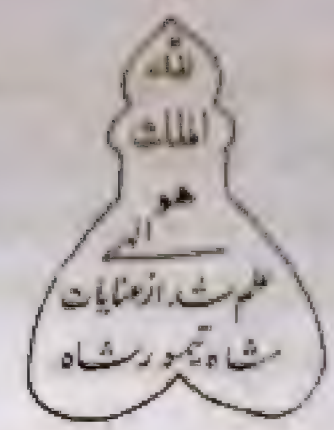 لله
الملك
هو
الہی
علم شد از عنایات
شاه تیمور شاه